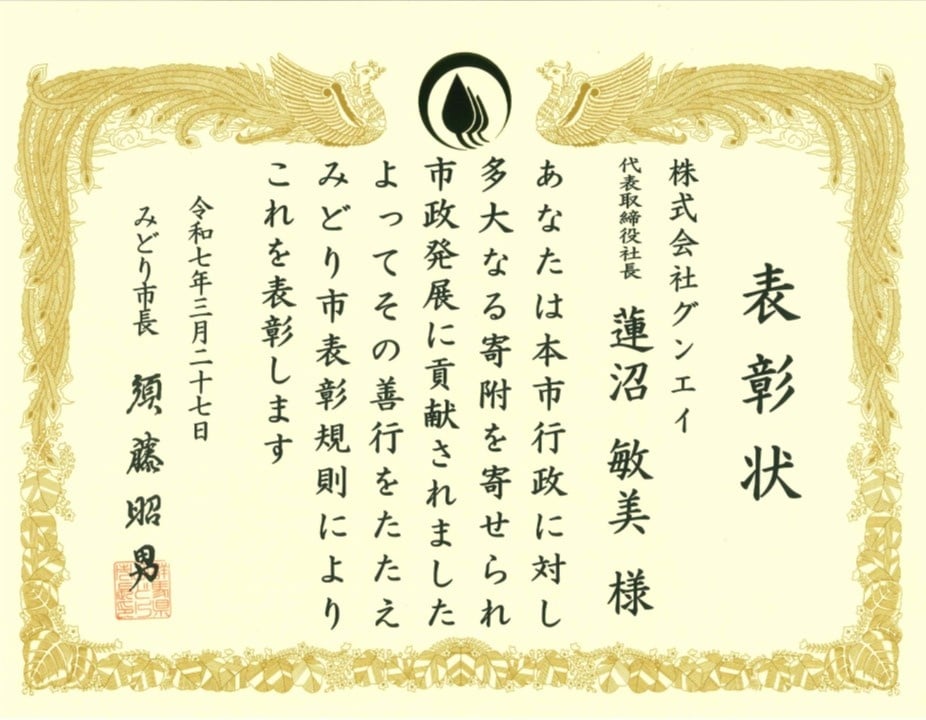 表彰状
株式会社グンエイ
代表取締役社長 蓮沼 敏美 様
あなたは本市行政に対し
多大なる寄附を寄せられ
市政発展に貢献されました
よってその善行をたたえ
みどり市表彰規則により
これを表彰します
令和七年三月二十七日
みどり市長 須藤昭男